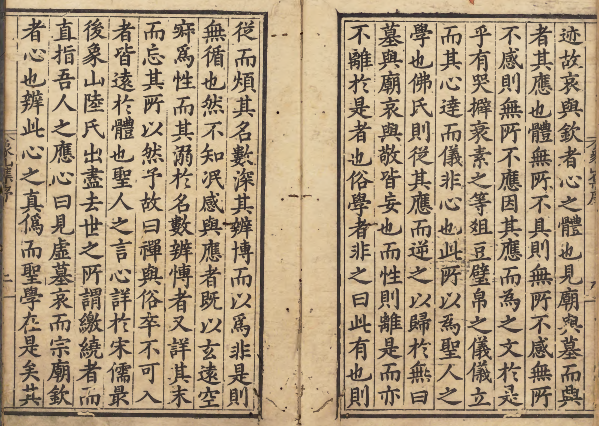 迹故哀與欽者心之體也見廟與墓而興
者其應也體無所不具則無所不感無所
不感則無所不應因其應而爲之文於是
乎有哭擗衰素之等俎豆璧帛之儀儀立
而其心達而儀非心也此所以爲聖人之
學也佛氏則從其應而逆之以歸於無曰
墓與廟哀與敬皆妄也而性則離是而亦
不離於是者也俗學者非之曰此有也則
從而煩其名數深其辨博而以爲非是則
無循也然不知泯感與應者既以玄遠空
寂爲性而其溺於名數辨愽者又詳其末
而忘其所以然予故曰禪與俗卒不可入
者皆遠於體也聖人之言心詳於宋儒最
後象山陸氏出盡去世之所謂繳繞者而
直指吾人之應心曰見虛墓哀而宗廟欽
者心也辨此心之真僞而聖學在是矣其